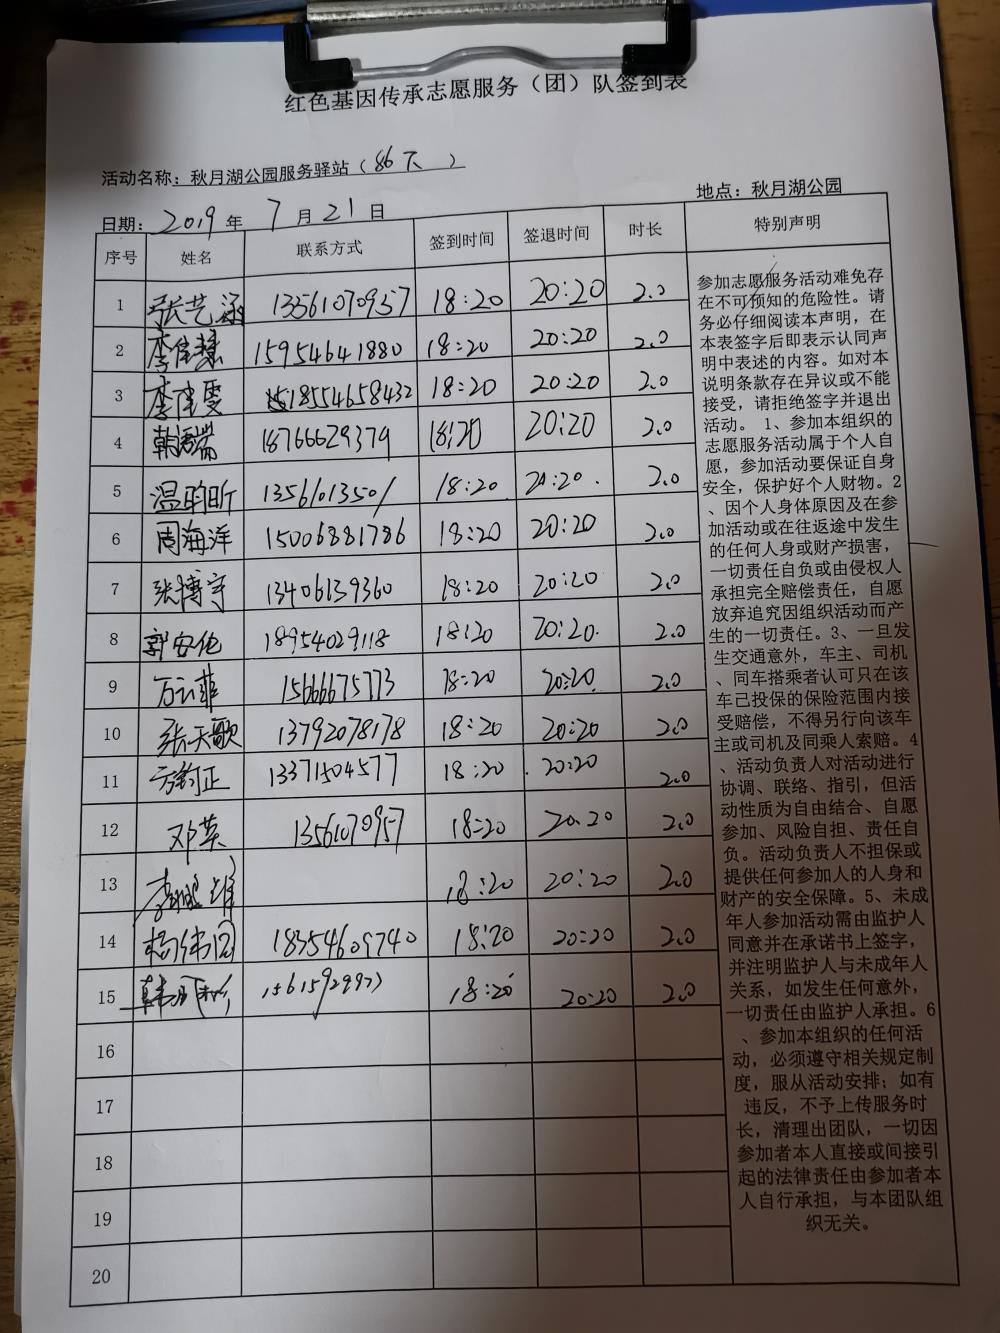 红色基因传承志愿服务（团）队签到表
活动名称：秋月湖公园服务驿站（86天）
地点：秋月湖公园
日期：2019年7月21日
序号 姓名 联系方式 签到时间 签退时间 时长 特别声明
1 张艺涵 13561070957 18:20 20:20 2.0
2 李佳慧 15954641880 18:20 20:20 2.0
3 李佳雯 18554658432 18:20 20:20 2.0
4 韩瑞 18766629379 18:20 20:20 2.0
5 温昀昕 1356101350/ 18:20 20:20. 2.0
6 周海洋 15006881786 18:20 20:20 2.0
7 张博宇 13406139360 18:20 20:20 2.0
8 郭安伦 18954029118 18:20 20:20. 2.0
9 万云菲 15666675773 18:20 20:20. 2.0
10 张天歌 13792078178 18:20 20:20 2.0
11 正 13371504577 18:20 20:20 2.0
12 邓英 13561070957 18:20 20.20 2.0
13 李 18:20 20:20 2.0
14 杨伟国 18354609740 18:20 20:20 2.0
15 韩 18:20 20:20 2.0
16
17
18
19
20
参加志愿服务活动难免存
在不可预知的危险性。请
务必仔细阅读本声明，在
本表签字后即表示认同声
明中表述的内容。如对本
说明条款存在异议或不能
接受，请拒绝签字并退出
活动。 1、参加本组织的
志愿服务活动属于个人自
愿，参加活动要保证自身
安全，保护好个人财物。2
、因个人身体原因及在参
加活动或在往返途中发生
的任何人身或财产损害，
一切责任自负或由侵权人
承担完全赔偿责任，自愿
放弃追究因组织活动而产
生的一切责任。3、一旦发
生交通意外，车主、司机
、同车搭乘者认可只在该
车已投保的保险范围内接
受赔偿，不得另行向该车
主或司机及同乘人索赔。4
、活动负责人对活动进行
协调、联络、指引，但活
动性质为自由结合、自愿
参加、风险自担、责任自
负。活动负责人不担保或
提供任何参加人的人身和
财产的安全保障。5、未成
年人参加活动需由监护人
同意并在承诺书上签字，
并注明监护人与未成年人
关系，如发生任何意外，
一切责任由监护人承担。6
、参加本组织的任何活
动，必须遵守相关规定制
度，服从活动安排；如有
违反，不予上传服务时
长，清理出团队，一切因
参加者本人直接或间接引
起的法律责任由参加者本
人自行承担，与本团队组
织无关。